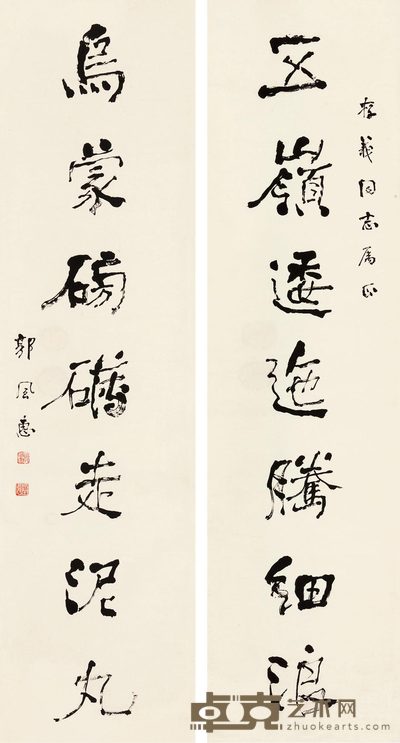 存義同志属正
五嶺逶迤騰細浪
烏蒙磅礴走泥丸
郭風惠
卓克艺术网
zhuokearts.com